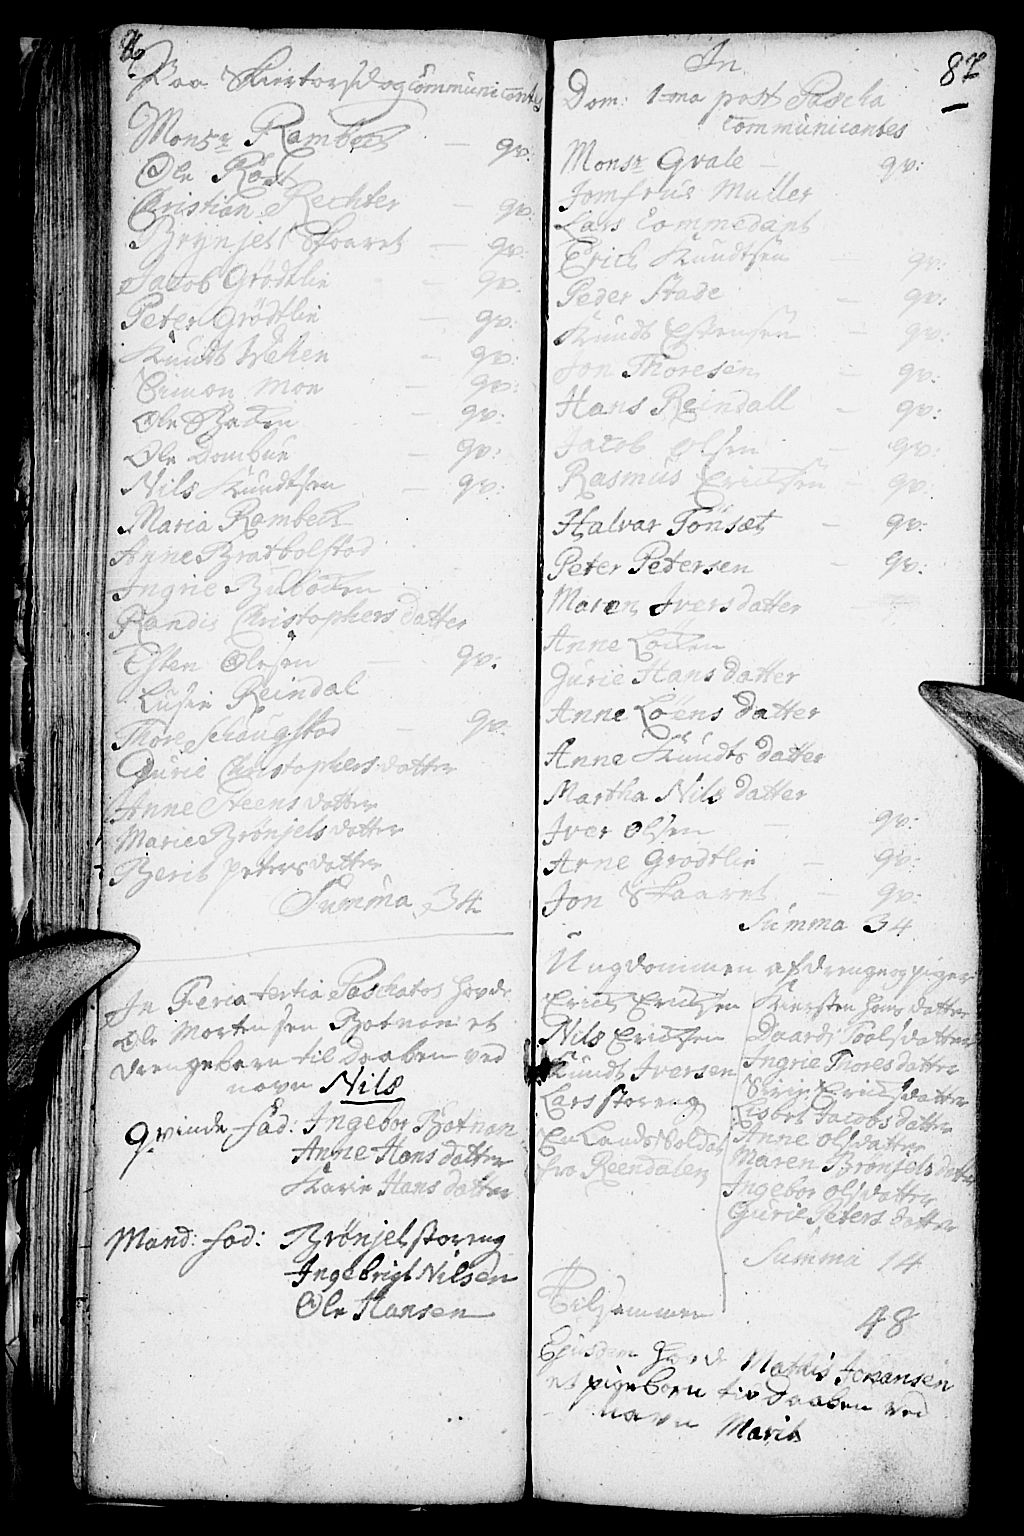 Paa Skiertorsdog Communicantes
Monsr Rambech — qv:
Ole Röst
Christian Rechter — qv:
Brynjel Skaaret — qv:
Jacob Grödtlie — qv:
Peter Grödtlie — qv:
Knudt Wehen — qv:
Simon Moe — qv:
Ole — qv:
Ole Dombue — qv:
Nils Knudtsen — qv:
Maria Rambech
Anne Bratbolstad
Ingrie
Randis Christophersdatter
Esten Olesen — qv:
Lusie Reindal
Thore Schougstad — qv.
Gurie Christophersdatter
Anne Steensdatter
Marie Brönjelsdatter
Berit Petersdatter
Summa 34
In Feria tertia Paschatos hovde
Ole Mortensen Botnan et
drengebarn til Daaben ved
navn Nils
Qvinde-fad: Ingebor Botnan
Anne Hansdatter
Karie Hansdatter
Mand: fad: Brönjel Storeng
Ingebrigt Nilsen
Ole Hansen
87
In
Dom: 1-ma post Pascha
Communicantes
Monsr Qvale — qv:
Jomfrue Muller
Lars Commedant
Erich Knudtsen — qv:
Peder Stade — qv:
Knudt Estensen — qv:
Jon Thoresen — qv:
Hans Reindall — qv:
Jacob Olsen — qv:
Rasmus Erichsen — qv:
Halvar Tönset — qv:
Peter Petersen — qv:
Maren Iversdatter
Anne
Gurie Hansdatter
Anne Löensdatter
Anne Knudtsdatter
Martha Nilsdatter
Iver Olsen — qv:
Arne Grödtlie — qv:
Jon Skaaret — qv:
Summa 34
Ungdommen af drenge og piger
Erich Erichsen
Nils Erichsen
Knudt Iversen
Lars Storeng
En Lands Soldat
fra Reendalen
Kiersten Hansdatter
Daardi Poolsdatter
Ingrie Thoresdatter
Siri Erichsdatter
Lisbet Jacobsdatter
Anne Olsdatter
Maren Brönjelsdatter
Ingebor Olsdatter
Gurie Petersdatter
Summa 14
Tilsammen 48
Ejusdem hovde Mathis Johansen
et pigebarn til Daaben ved
navn Marit